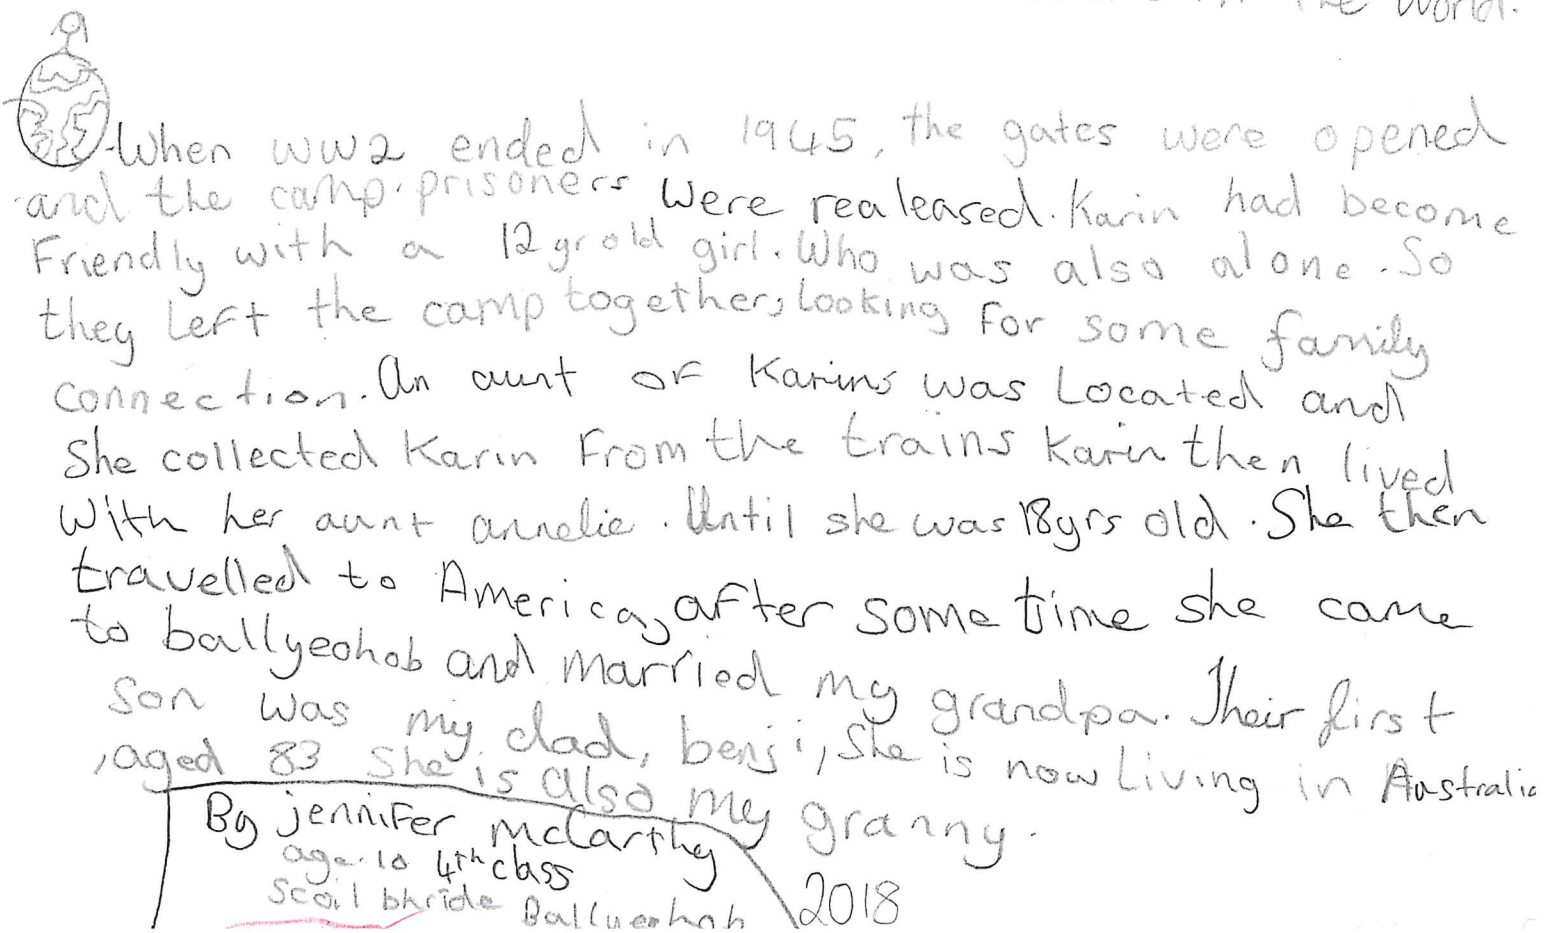 the world.
When ww2 ended in 1945, the gates were opened
and the camp prisoners were realeased. Karin had become
Friendly with a 12 yr old girl. Who was also alone. So
they Left the camp together, Looking for some family
connection. An aunt of Karins was Located and
She collected Karin From the trains Karin then lived
With her aunt annelie. Until she was 18yrs old. She then
travelled to America, after some time she came
to ballyeohob and married my grandpa. Their first
son was my dad, benji, She is now Living in Australia
, aged 83 She is also my granny.
By jennifer mcCarthy
age 10 4th class
Scoil bhride Ballyeohob
2018